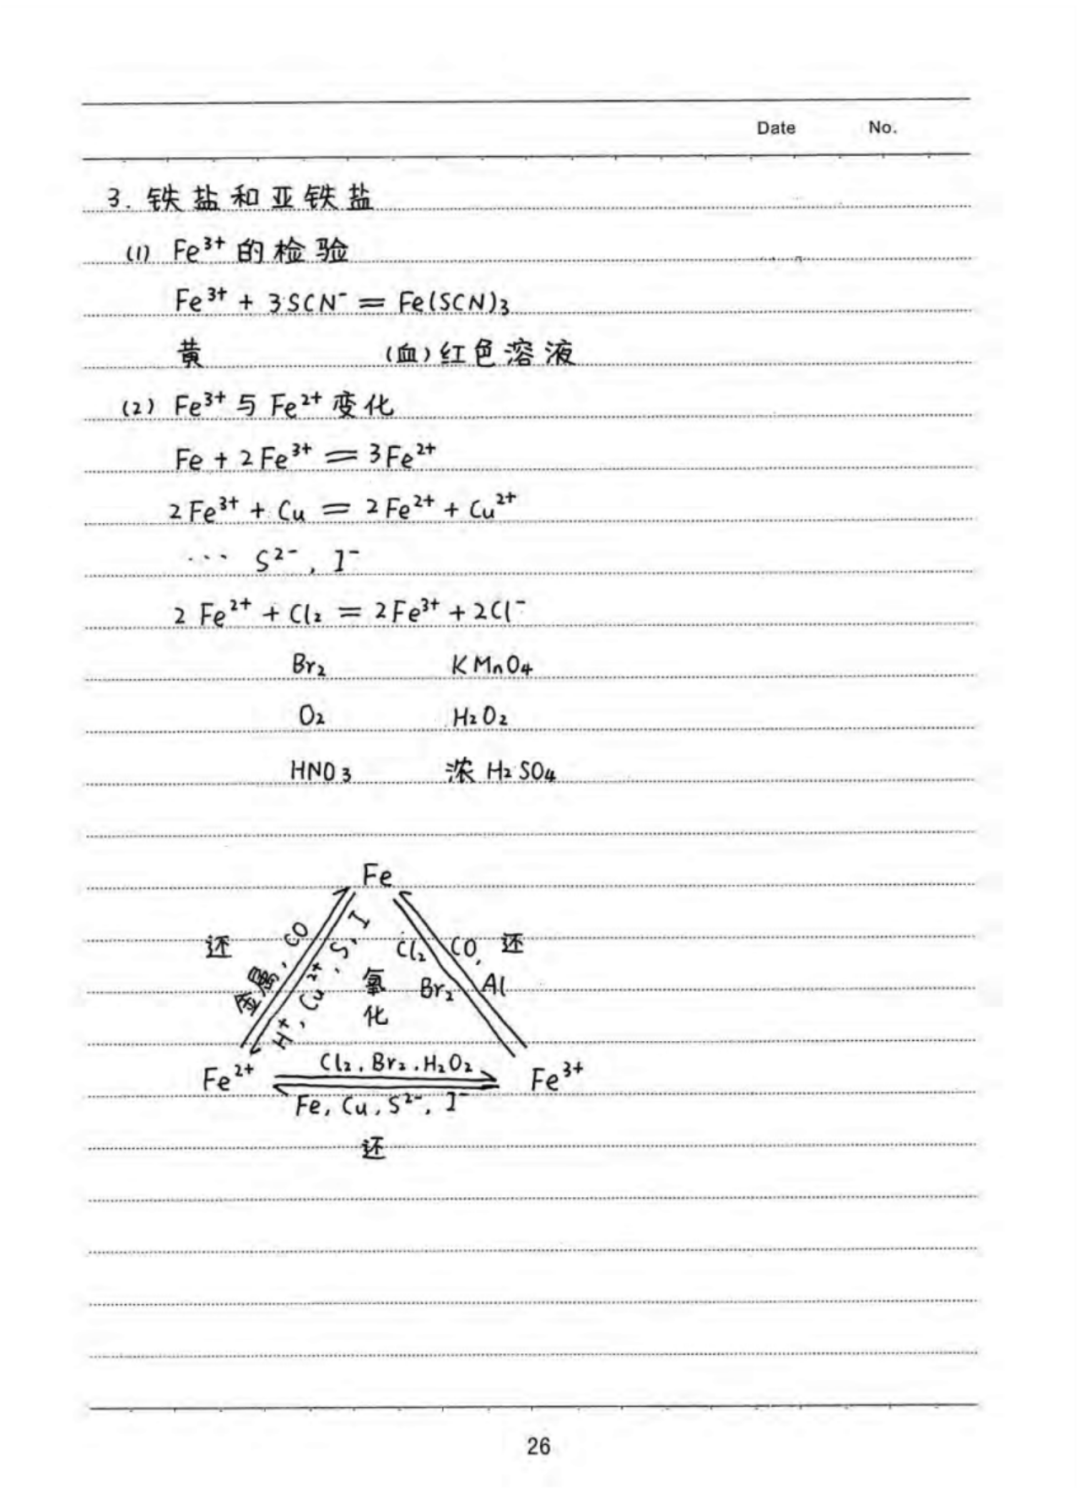 Date No.
3. 铁盐和亚铁盐
(1) Fe³⁺ 的检验
Fe³⁺ + 3SCN⁻ = Fe(SCN)₃
黄 (血)红色溶液
(2) Fe³⁺ 与 Fe²⁺ 变化
Fe + 2Fe³⁺ = 3Fe²⁺
2Fe³⁺ + Cu = 2Fe²⁺ + Cu²⁺
... S²⁻, I⁻
2Fe²⁺ + Cl₂ = 2Fe³⁺ + 2Cl⁻
Br₂ KMnO₄
O₂ H₂O₂
HNO₃ 浓H₂SO₄
Fe
还
金属, CO
H⁺, Cu²⁺, S, I
氧化
Cl₂
Br₂
CO, Al
还
Fe²⁺
Cl₂, Br₂, H₂O₂
Fe³⁺
Fe, Cu, S²⁻, I⁻
还
26